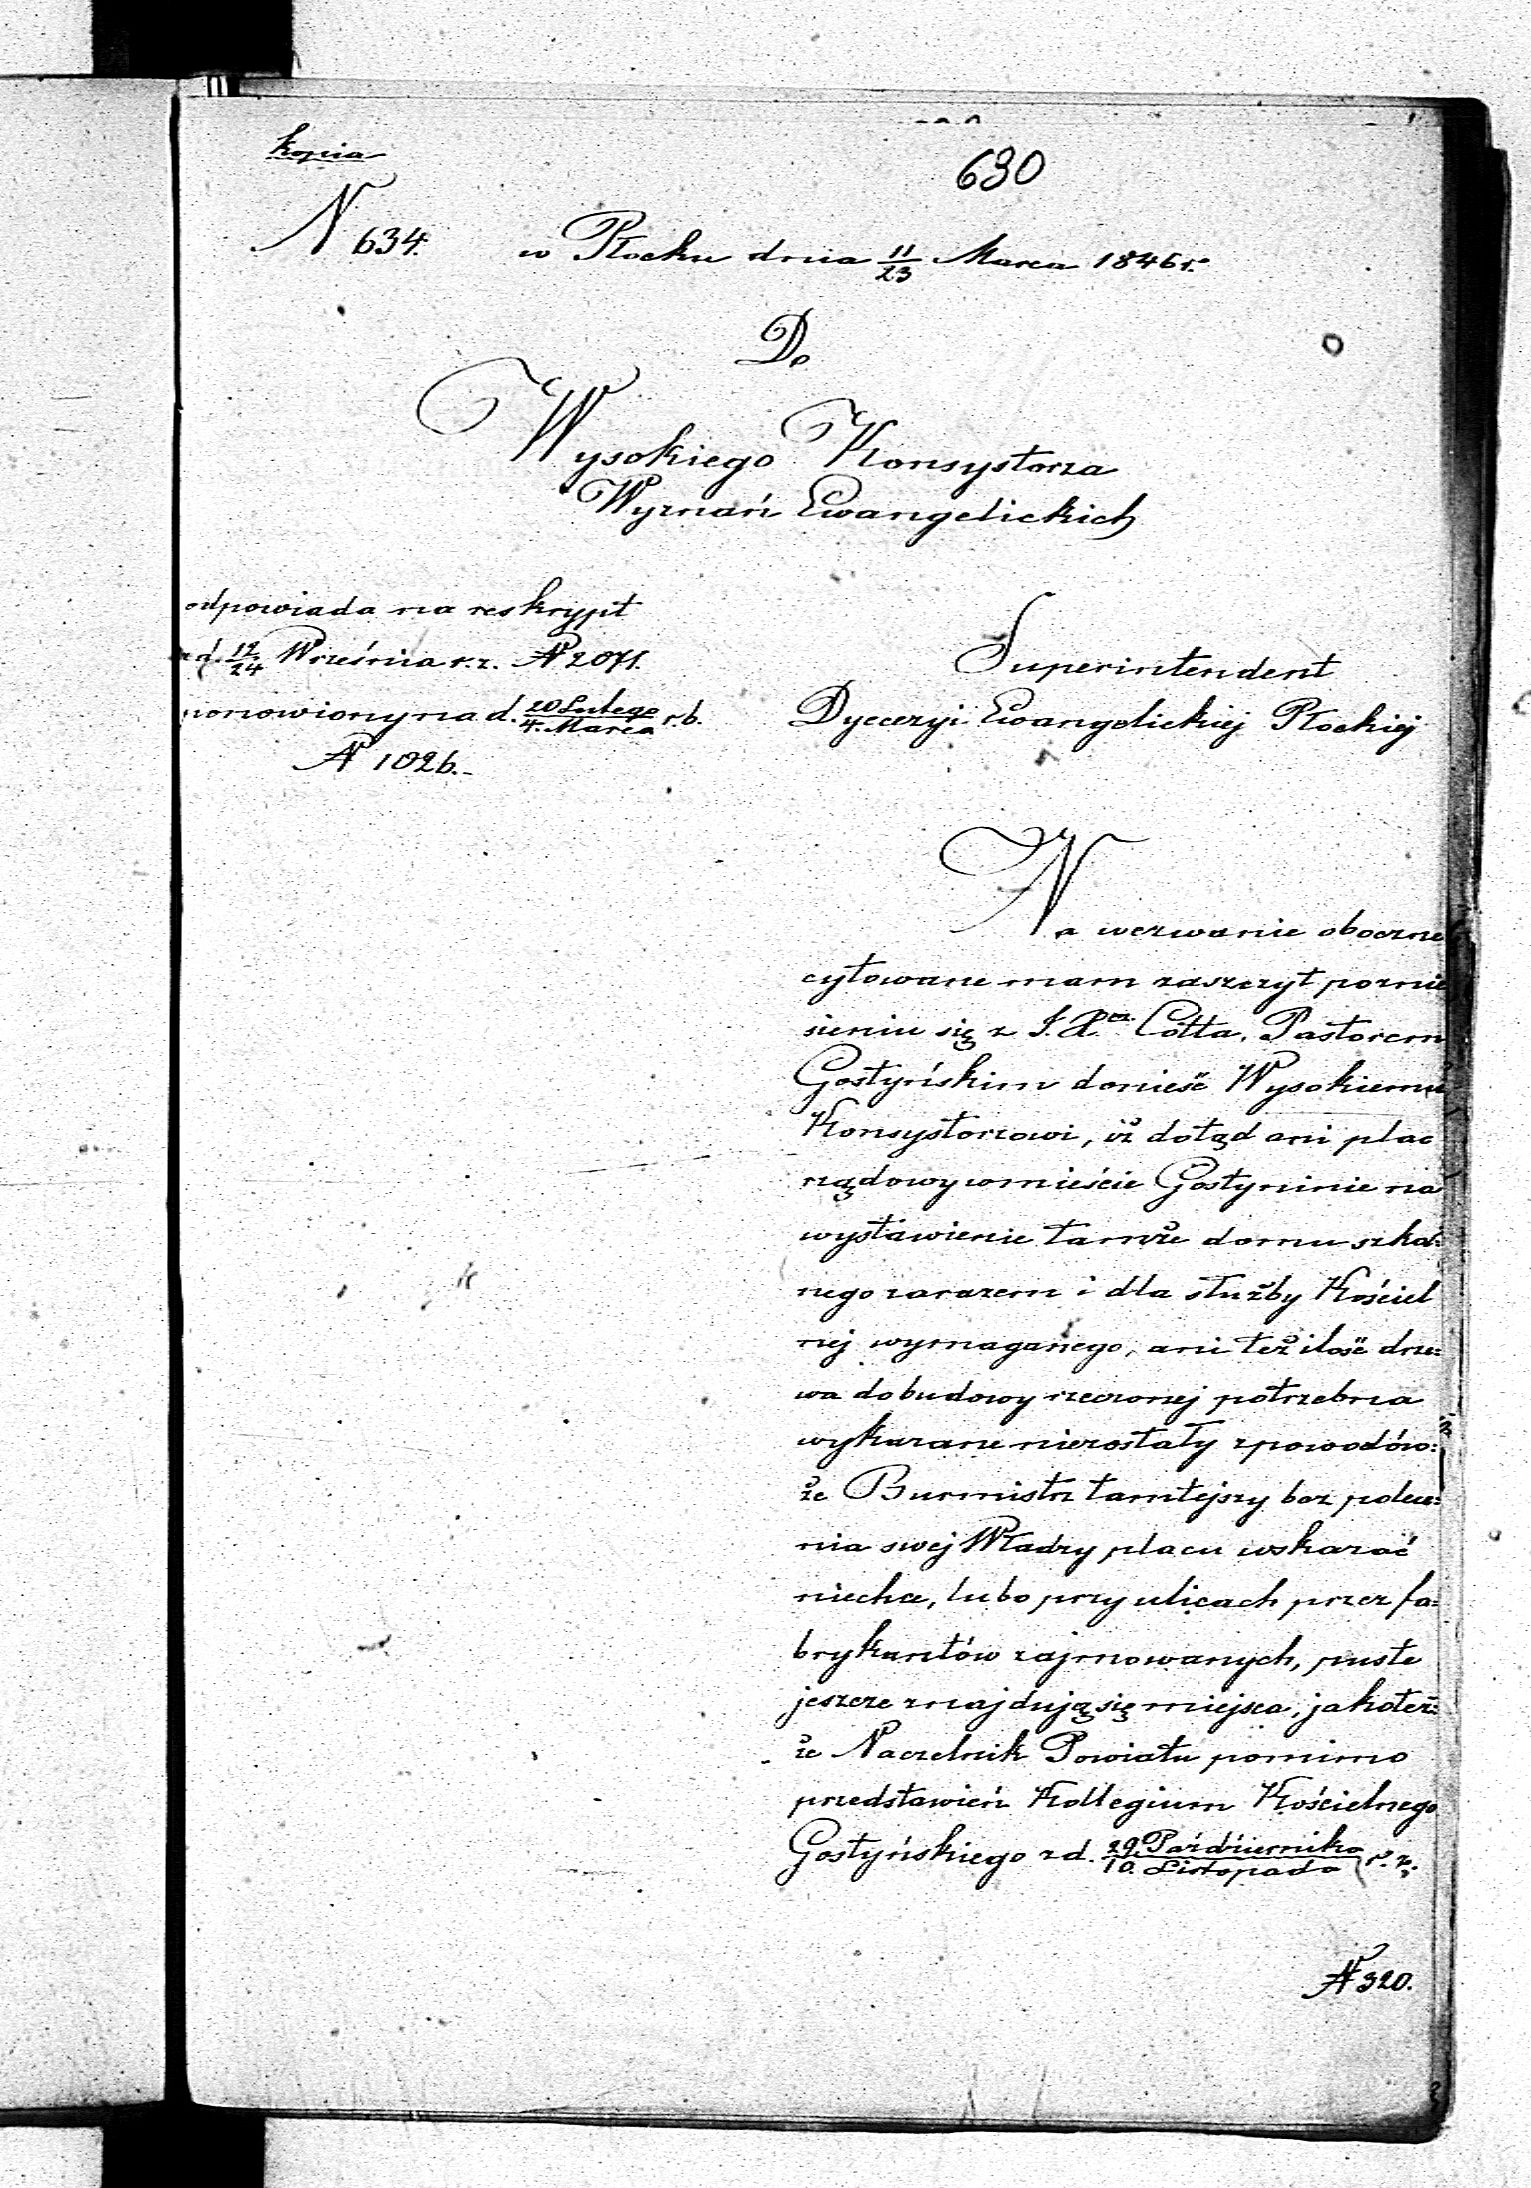 kopia
630
N 634. w Płocku dnia 11/23 Marca 1846 r.
Do
Wysokiego Konsystorza
Wyznań Ewangelickich
odpowiada na reskrypt
z d. 12/24 Września r. z. N 2071.
ponowiony na d. 20 Lutego/4. Marca r. b.
N 1026.
Superintendent
Dyecezyi Ewangelickiej Płockiej
Na wezwanie oboczne
cytowane mam zaszczyt poznie
sieniu się z J. X. Cotta, Pastorem
Gostyńskim donieść Wysokiemu
Konsystorzowi, iż dotąd ani plac
rządowy w mieście Gostyninie na
wystawienie tamże domu szkol=
nego zarazem i dla służby Kościel
nej wymaganego, ani też ilość drze=
wa do budowy rzeczonej potrzebna
wykazane niezostały z powodów:
że Burmistrz tamtejszy bez polece=
nia swej Władzy placu wskazać
niechce, lubo przy ulicach przez fa=
brykantów zajmowanych, puste
jeszcze znajdują się miejsca, jakoteż:
że Naczelnik Powiatu pomimo
przedstawień Kollegium Kościelnego
Gostyńskiego z d. 29. Października/10. Listopada r. z.
N 320.